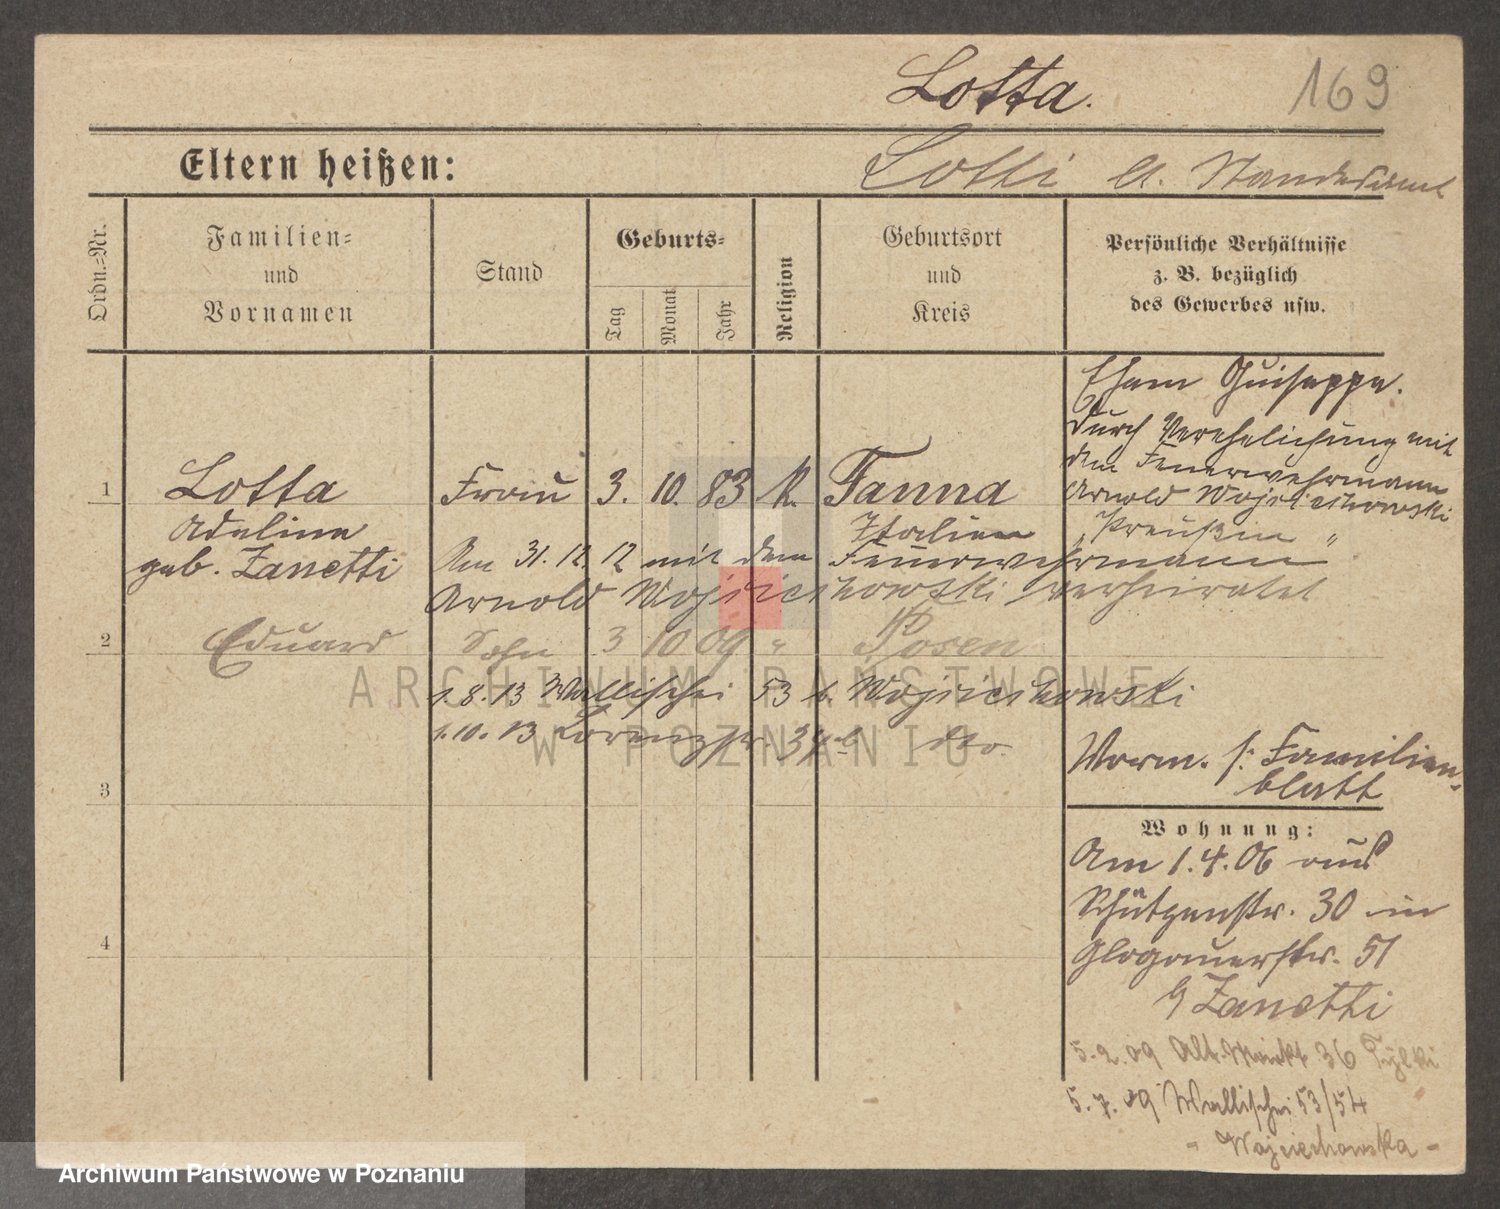 Lotta.
169
Eltern heißen:
Lotti lt. Standesamt
Ordn.-Nr.
Familien-
und
Vornamen
Stand
Geburts-
Tag
Monat
Jahr
Religion
Geburtsort
und
Kreis
Persönliche Verhältnisse
z. B. bezüglich
des Gewerbes usw.
Ehem Guiseppe.
durch Verehelichung mit
dem Feuerwehrmann
Arnold Wojciechowski
„Preußin"
1 Lotta Frau 3. 10. 83 K. Fanna
Adeline Italien
geb. Zanetti Am 31. 12. 12 mit dem Feuerwehrmann
Arnold Wojciechowski verheiratet
2 Eduard Sohn 3 10 09 " Posen
1.8.13 Wallischei 53 b. Wojciechowski
1.10.13 Lorenzstr. dto.
Vorm. s: Familien-
blatt
3
Wohnung:
Am 1.4.06 aus
Schützenstr. 30 in
Glogauerstr. 51
b Zanetti
4
5.2.09 Alt. Markt 36 Tylski
5.7.09 Wallischei 53/54
- Wojciechowska -
ARCHIWUM PAŃSTWOWE
W POZNANIU
Archiwum Państwowe w Poznaniu